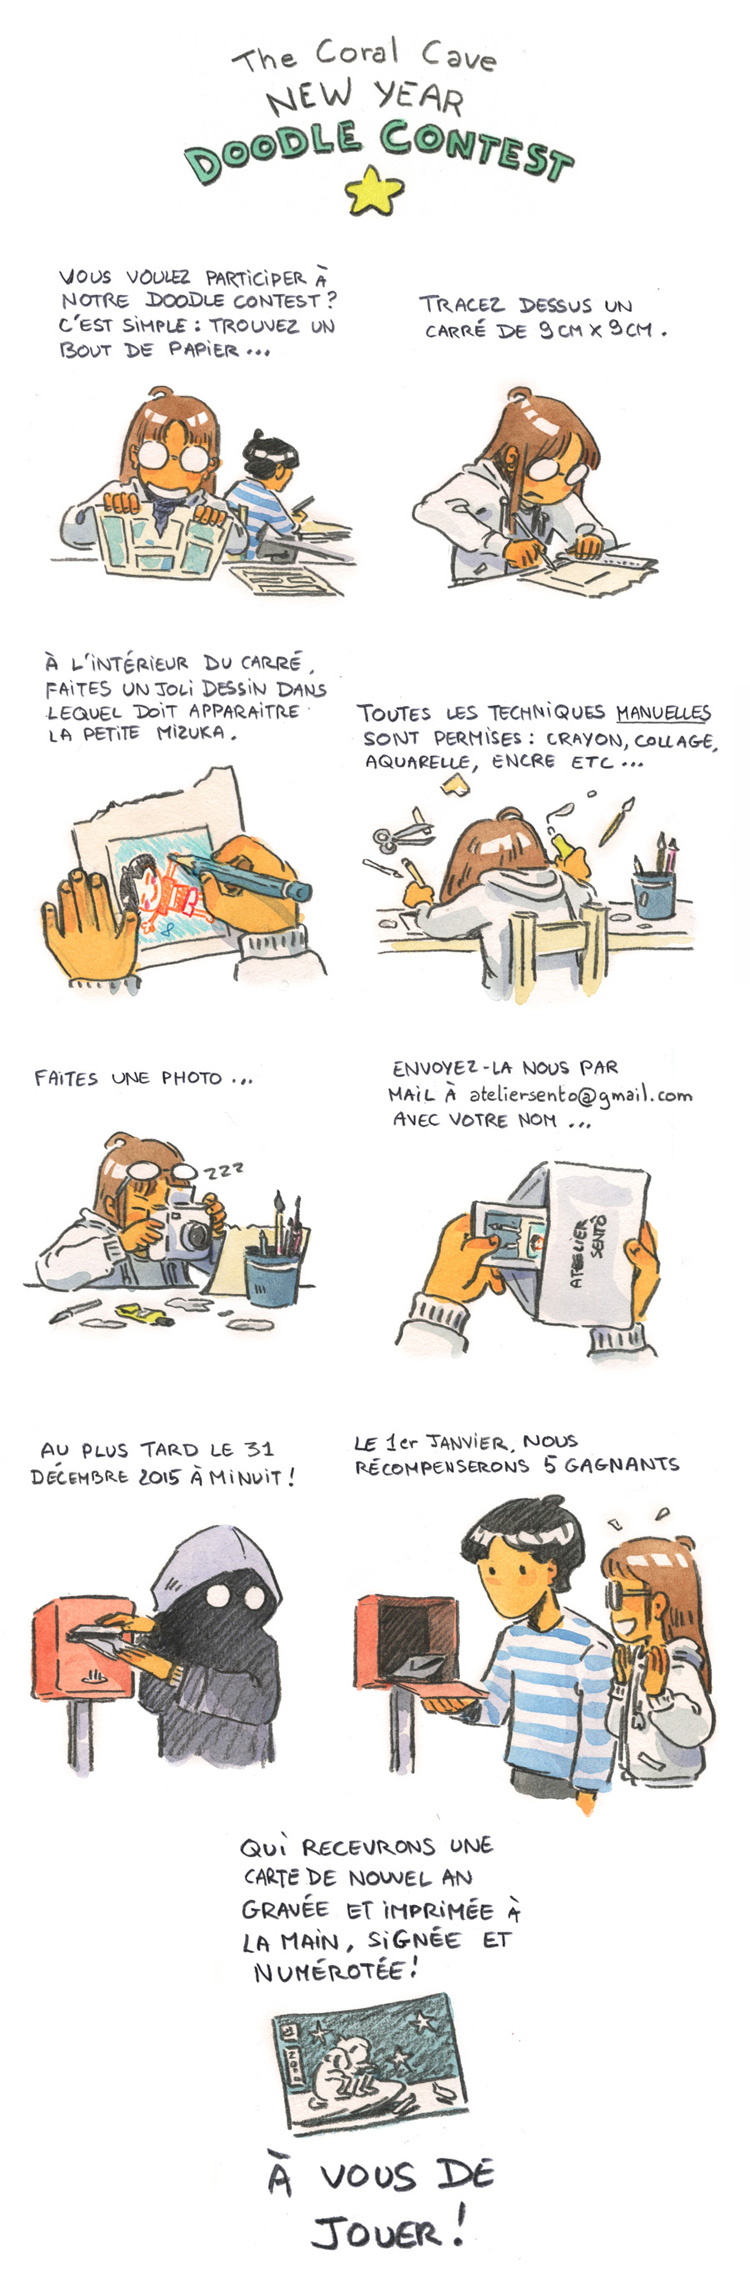 The Coral Cave
NEW YEAR
DOODLE CONTEST
VOUS VOULEZ PARTICIPER À
NOTRE DOODLE CONTEST ?
C'EST SIMPLE : TROUVEZ UN
BOUT DE PAPIER ...
TRACEZ DESSUS UN
CARRÉ DE 9 CM X 9 CM .
À L'INTÉRIEUR DU CARRÉ,
FAITES UN JOLI DESSIN DANS
LEQUEL DOIT APPARAITRE
LA PETITE MIZUKA .
TOUTES LES TECHNIQUES MANUELLES
SONT PERMISES : CRAYON, COLLAGE,
AQUARELLE, ENCRE ETC ...
FAITES UNE PHOTO ...
zzz
ENVOYEZ-LA NOUS PAR
MAIL À ateliersento@gmail.com
AVEC VOTRE NOM ...
ATELIER
SENTÔ
AU PLUS TARD LE 31
DÉCEMBRE 2015 À MINUIT !
LE 1er JANVIER, NOUS
RÉCOMPENSERONS 5 GAGNANTS
QUI RECEVRONS UNE
CARTE DE NOUVEL AN
GRAVÉE ET IMPRIMÉE À
LA MAIN, SIGNÉE ET
NUMÉROTÉE !
À VOUS DE
JOUER !